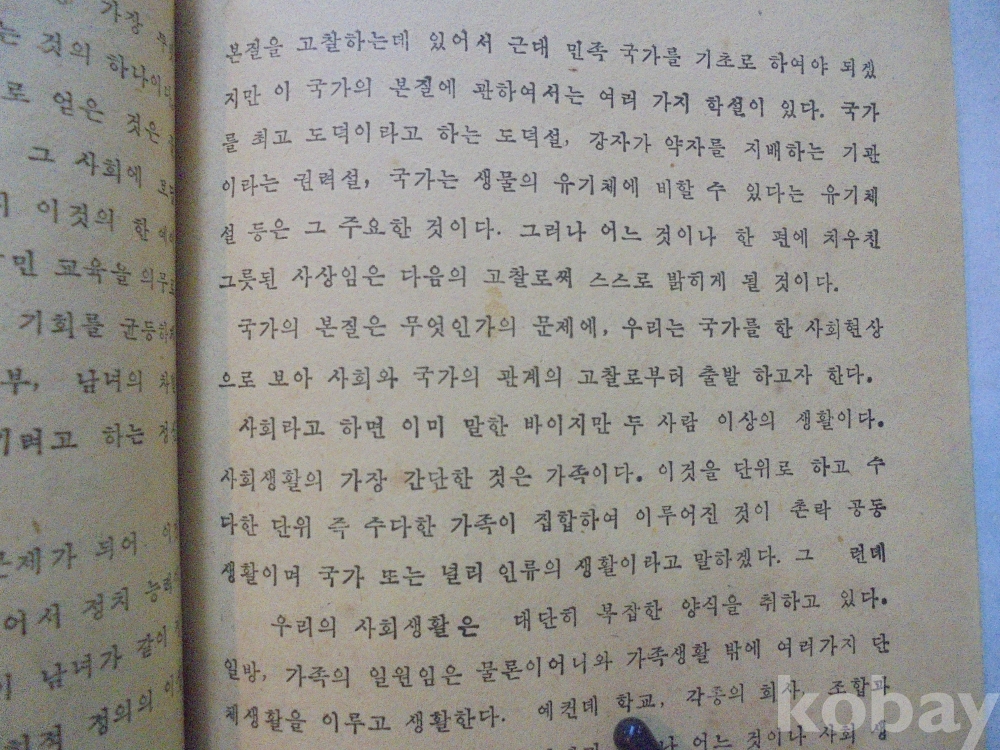 가장
는 것의 하나이다.
로 얻은 것은
그 사회에
이것의 한
교육을 의무로
기회를 균등하게
부, 남녀의
하는
되어
어서 정치
남녀가 같이
정의의
본질을 고찰하는데 있어서 근대 민족 국가를 기초로 하여야 되겠
지만 이 국가의 본질에 관하여서는 여러 가지 학설이 있다. 국가
를 최고 도덕이라고 하는 도덕설, 강자가 약자를 지배하는 기관
이라는 권력설, 국가는 생물의 유기체에 비할 수 있다는 유기체
설 등은 그 주요한 것이다. 그러나 어느 것이나 한 편에 치우친
그릇된 사상임은 다음의 고찰로써 스스로 밝히게 될 것이다.
국가의 본질은 무엇인가의 문제에, 우리는 국가를 한 사회현상
으로 보아 사회와 국가의 관계의 고찰로부터 출발 하고자 한다.
사회라고 하면 이미 말한 바이지만 두 사람 이상의 생활이다.
사회생활의 가장 간단한 것은 가족이다. 이것을 단위로 하고 수
다한 단위 즉 수다한 가족이 집합하여 이루어진 것이 촌락 공동
생활이며 국가 또는 널리 인류의 생활이라고 말하겠다. 그 런데
우리의 사회생활은 대단히 부잡한 양식을 취하고 있다.
일방, 가족의 일원임은 물론이어니와 가족생활 밖에 여러가지 단
체생활을 이루고 생활한다. 예컨데 학교, 각종의 회사, 조합과
어느 것이나 사회 생
kobay